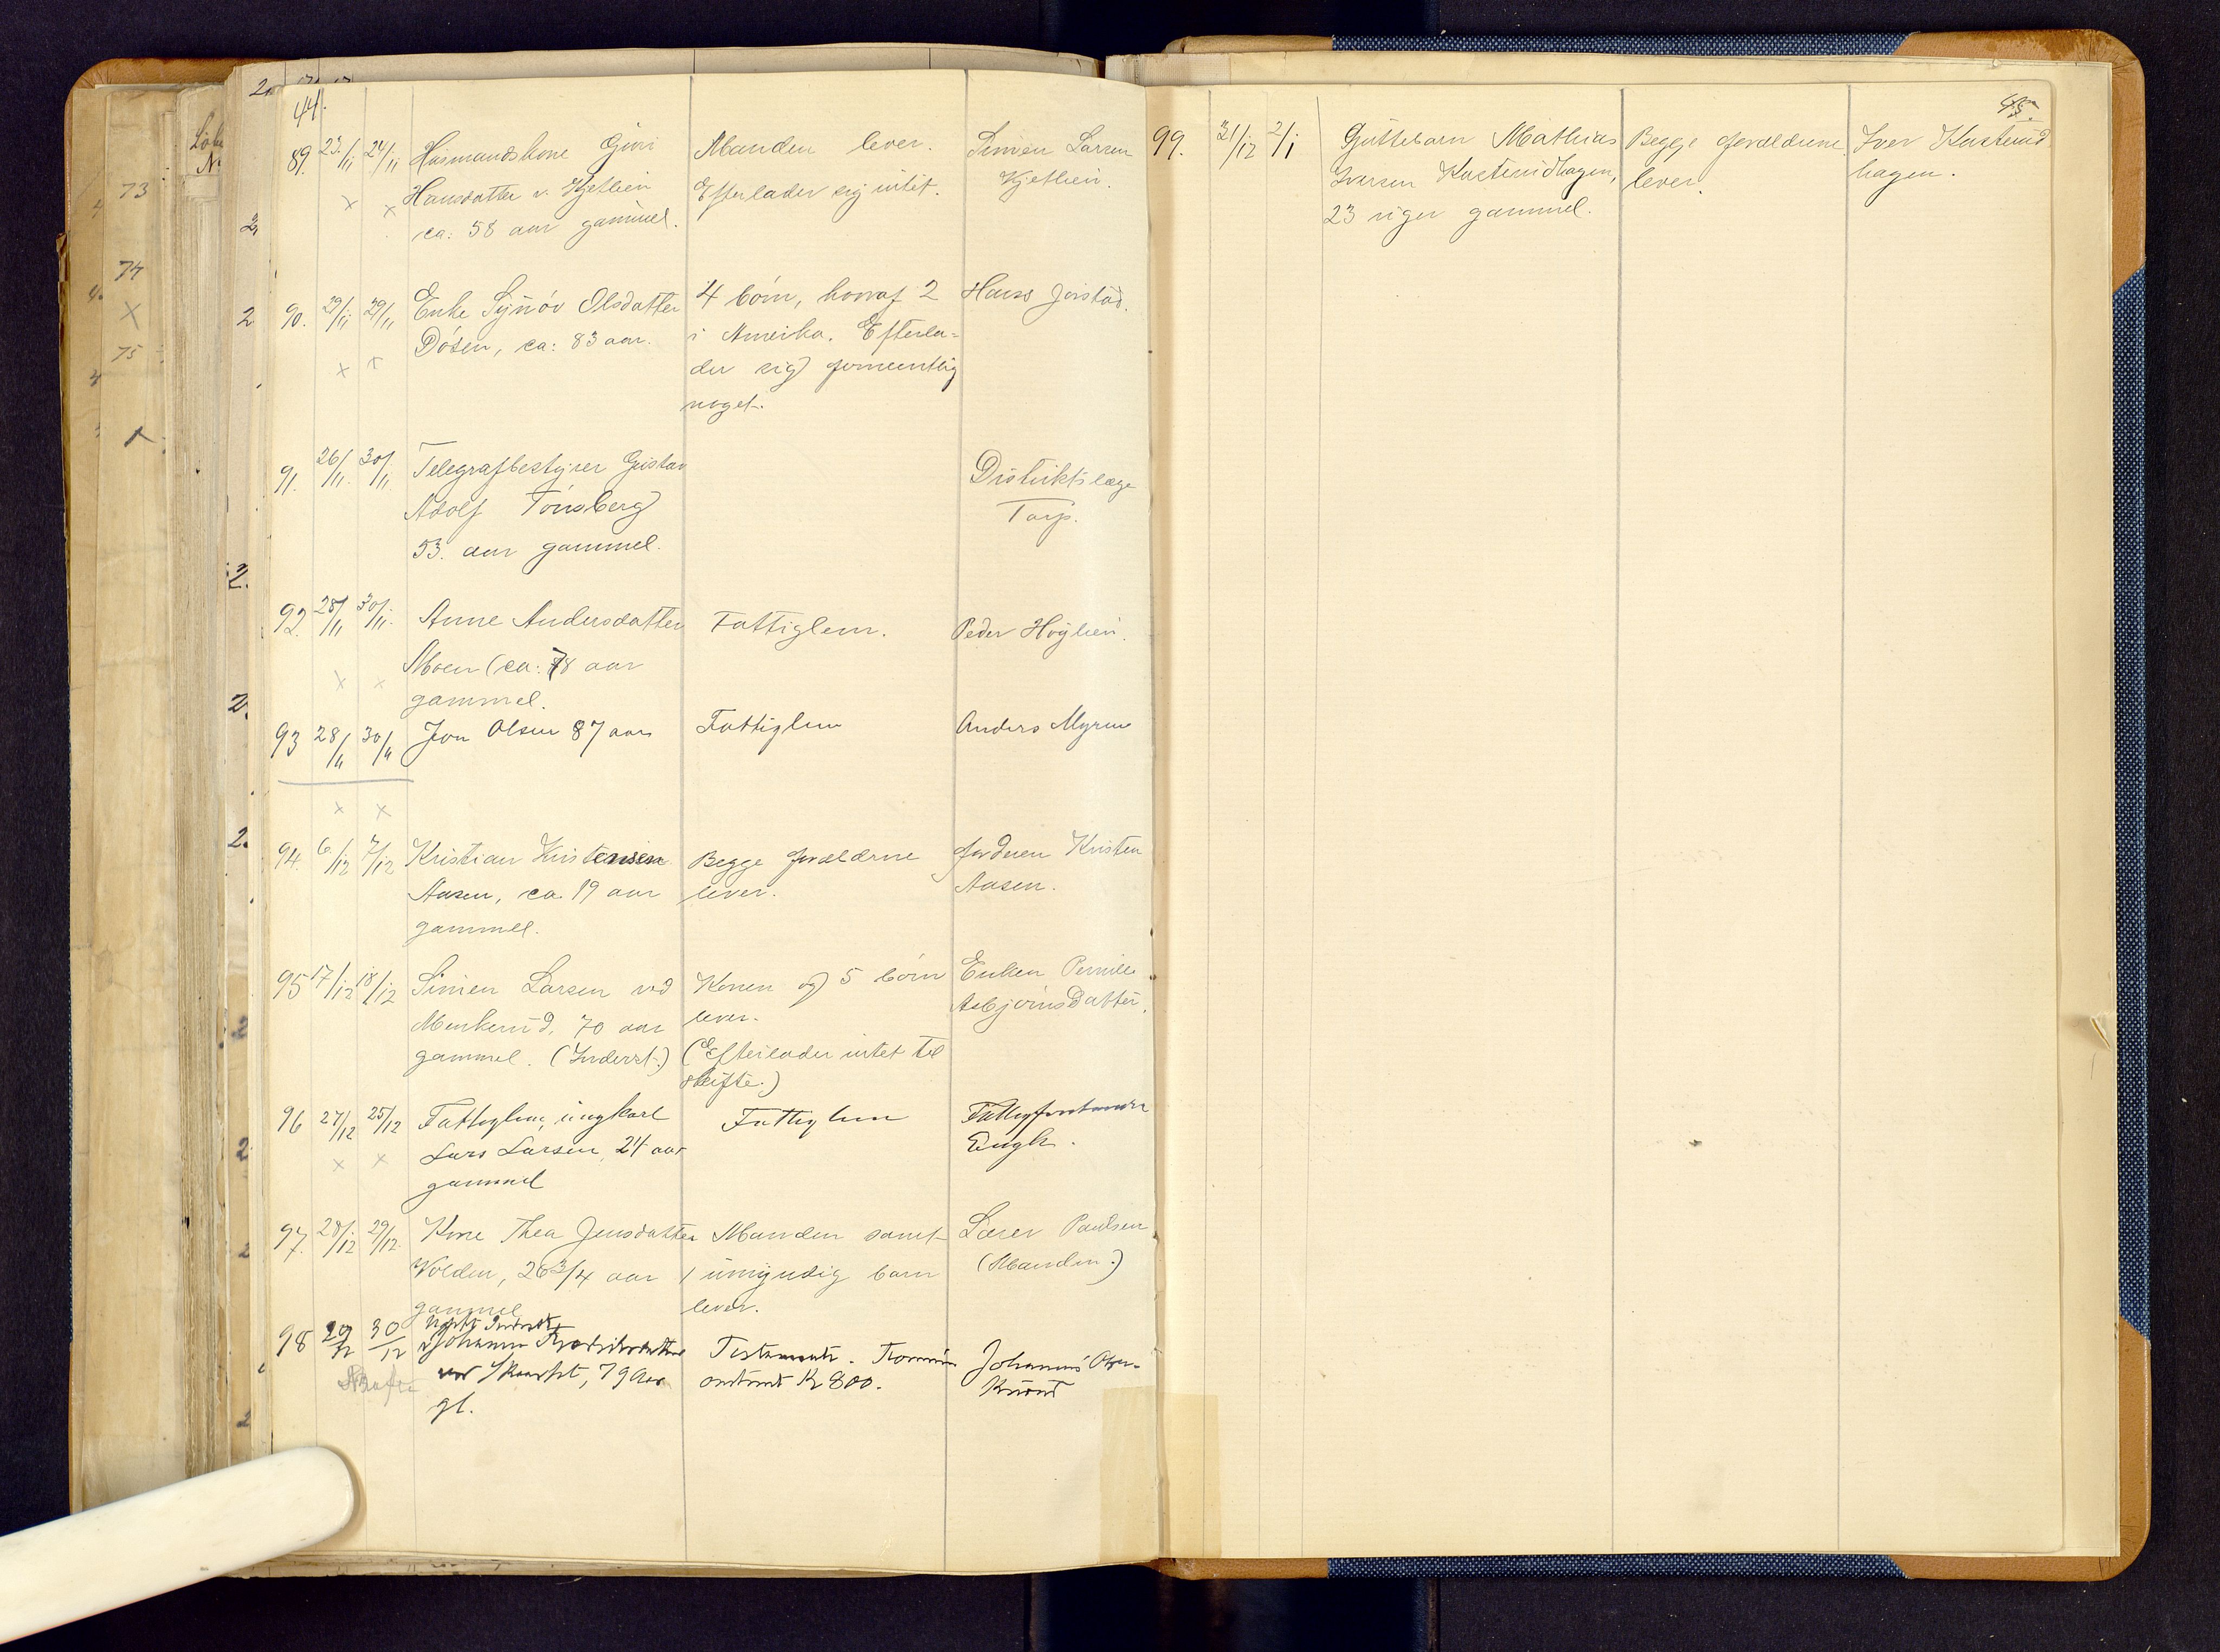 44.
89. 23/11 24/11 Husmandskone Guri Manden lever. Simen Larsen
Hansdatter v. Kjetlien Efterlader sig intet. Kjetlien.
ca: 58 aar gammel.
90. 29/11 29/11 Enke Synöv Olsdatter 4 börn, hvoraf 2 Hans Jorstad.
Dösen, ca: 83 aar. i Amerika. Efterla-
der sig formentlig
noget.
91. 26/11 30/11 Telegrafbestyrer Gustav Distriktslæge
Adolf Tönsberg Tarp.
53. aar gammel.
92. 28/11 30/11 Anne Andersdatter Fattiglem. Peder Höylien.
Moen (ca: 78 aar
gammel.
93 28/11 30/11 Jon Olsen 87 aar Fattiglem Anders Myren
94. 6/12 7/12 Kristian Kristensen Begge forældrene Faderen Kristen
Aasen, ca. 19 aar lever. Aasen.
gammel.
95 17/12 18/12 Simen Larsen ved Konen og 5 börn Enken Pernille
Menkerud. 70 aar lever. Asbjörnsdatter.
gammel. (Inderst.) (Efterlader intet til
skifte.)
96 27/12 25/12 Fattiglem, ungkarl Fattiglem Fattigforstander
Lars Larsen, 24 aar Eingh.
gammel
97. 28/12 29/12. Kone Thea Jensdatter Manden samt Lærer Paulsen
Volden, 26 3/4 aar 1 umyndig barn (Manden.)
gammel lever.
98 29/12 30/12 Johanne
79 Aar Testamente. Kr 800. Johannes
gl.
45.
99. 31/12 2/1 Guttebarn Mathias Begge forældrene Iver Kasterud
Iversen Kasterudhagen, lever. hagen.
23 uger gammel.